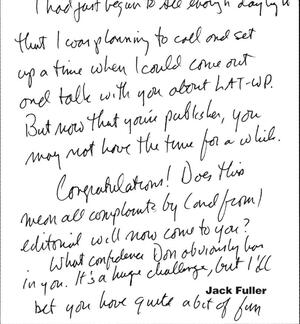 I had just begun to see enough daylight
that I was planning to call and set
up a time when I could come out
and talk with you about LAT-WP.
But now that you're publisher, you
may not have the time for a while.
Congratulations! Does this
mean all complaints by (and from)
editorial will now come to you?
What confidence Don obviously has
in you. It's a huge challenge, but I'll
Jack Fuller
bet you have quite a bit of fun